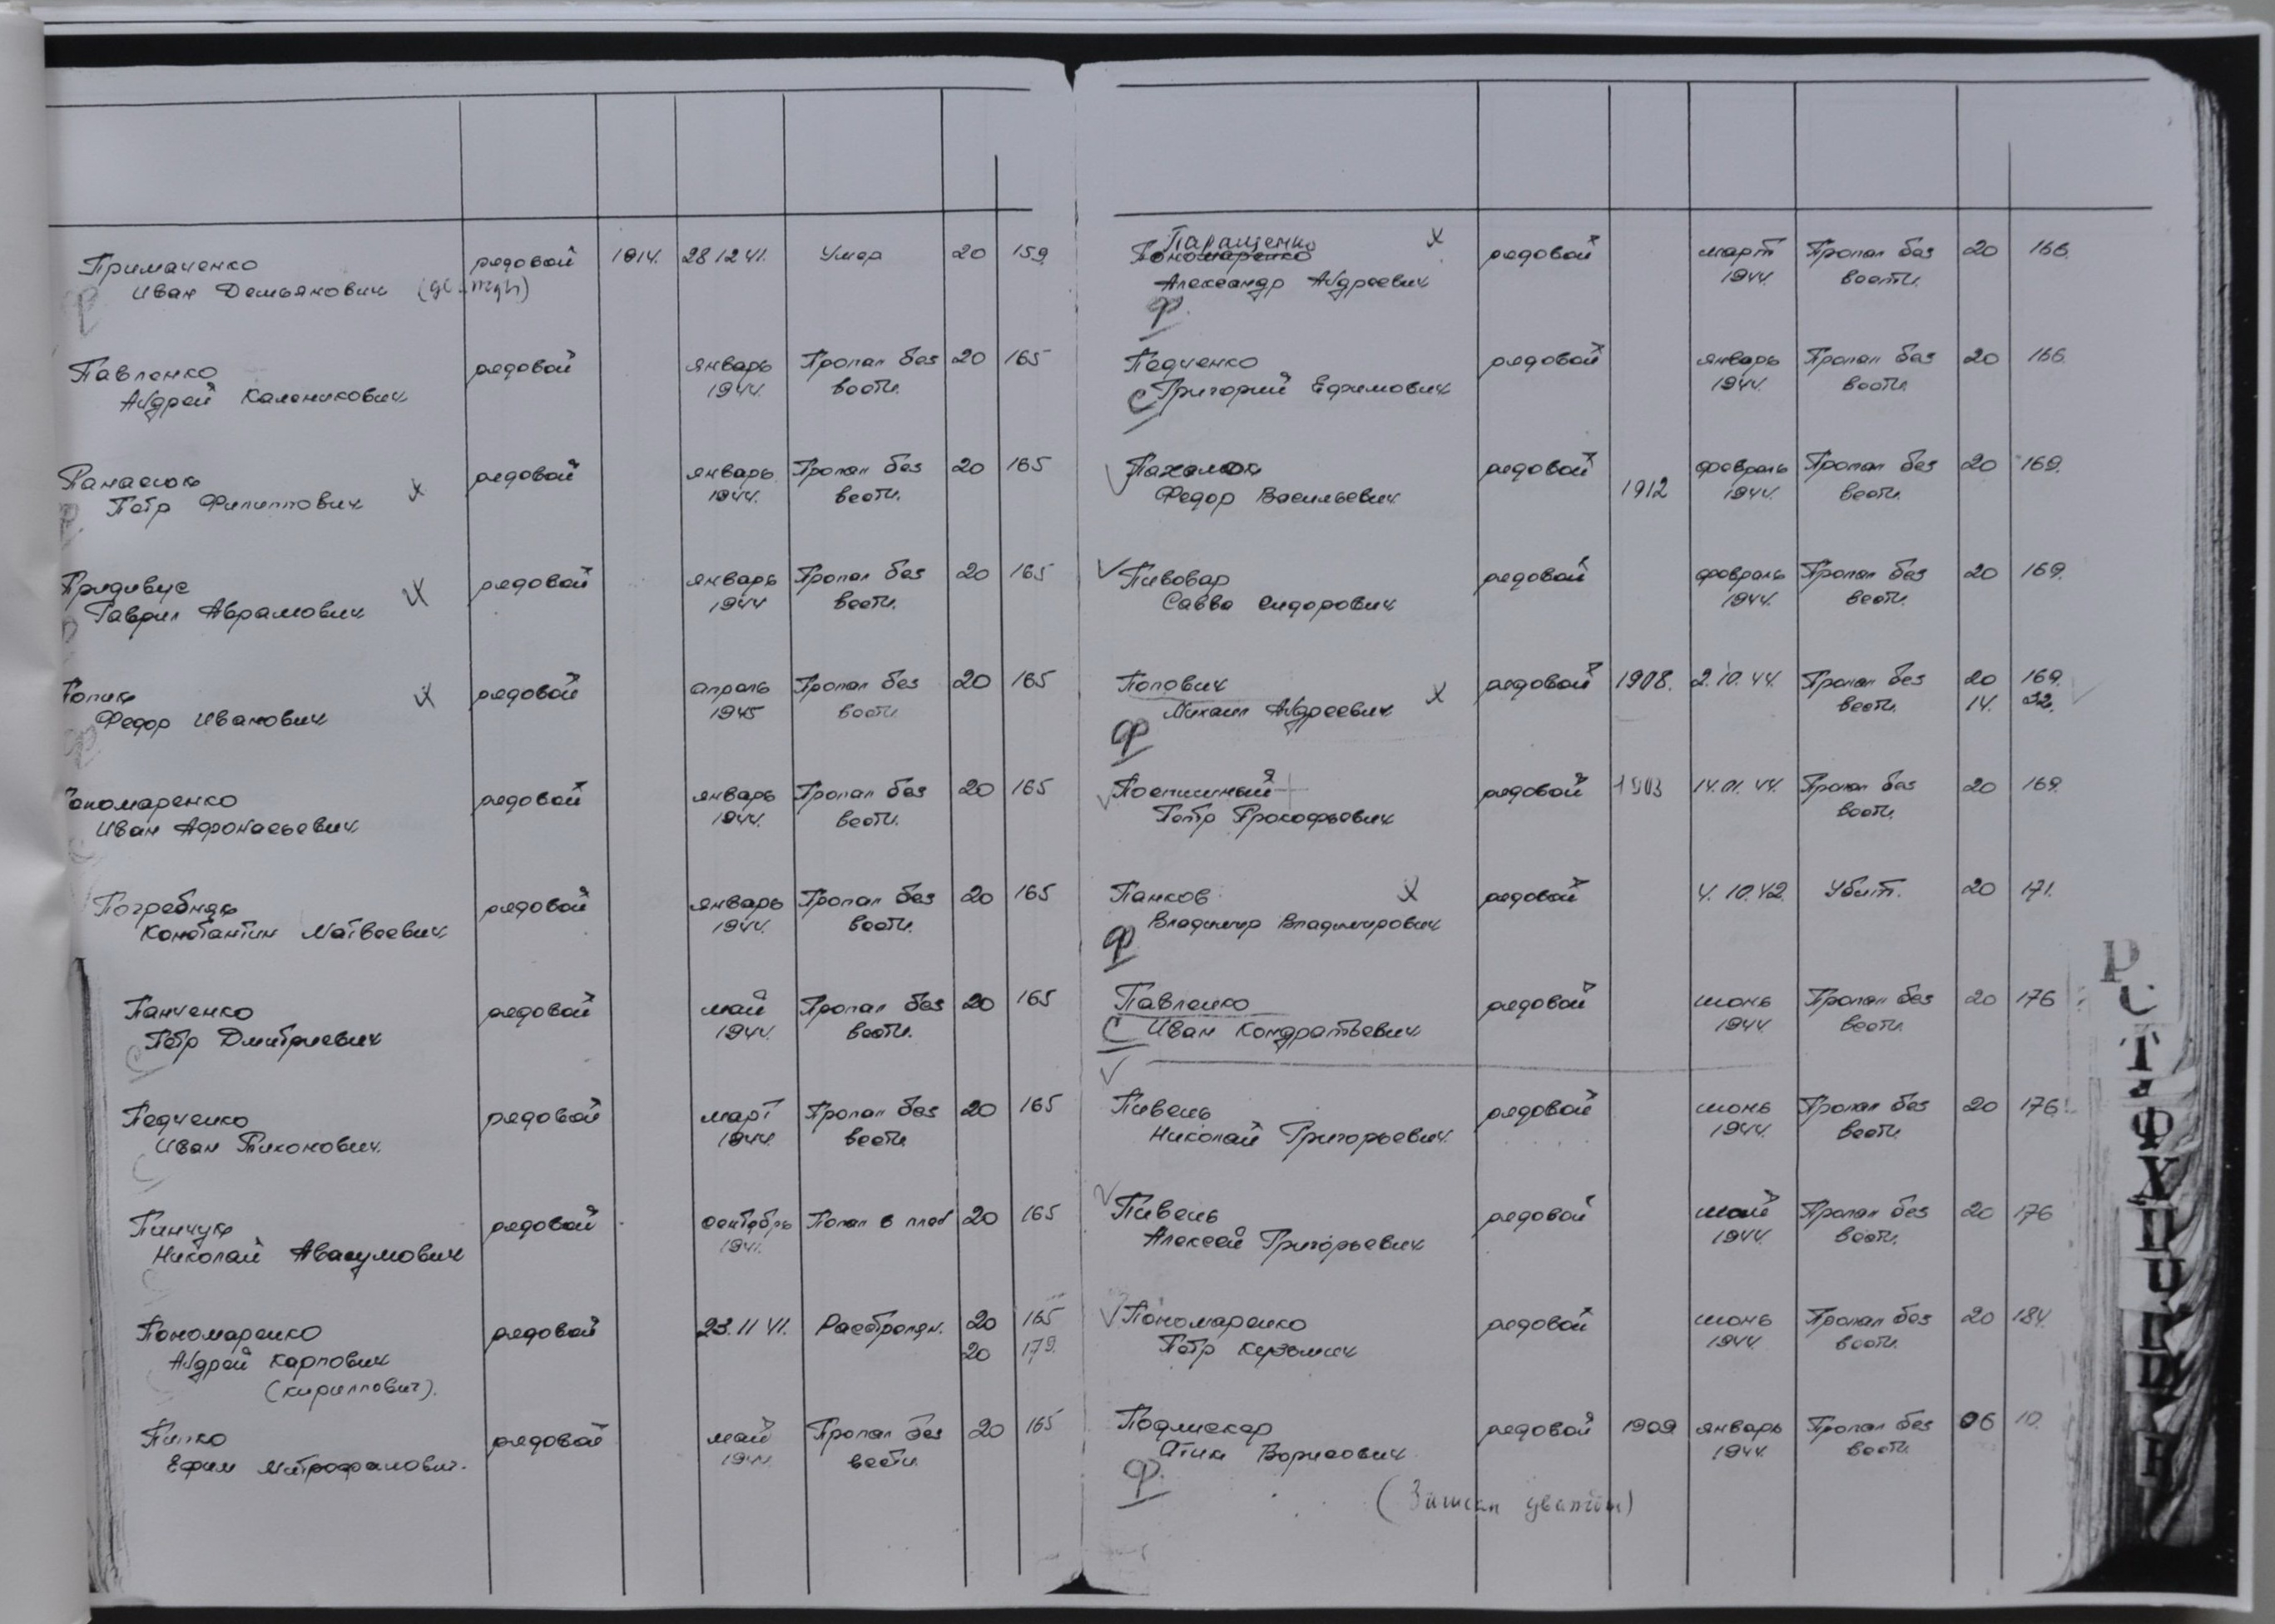 Примаченко рядовой 1914. 28 12 41. Умер 20 159.
Иван Демьянович
Павленко рядовой январь Пропал без 20 165
Андрей Каленикович 1944. вести.
Панасюк рядовой январь Пропал без 20 165
Петр Филиппович х 1944. вести.
Придивус рядовой январь Пропал без 20 165
Гаврил Абрамович х 1944 вести.
Попик рядовой апрель Пропал без 20 165
Федор Иванович х 1945 вести
Пономаренко рядовой январь Пропал без 20 165
Иван Афонасьевич 1944. вести.
Погребняк рядовой январь Пропал без 20 165
Константин Матвеевич 1944. вести.
Панченко рядовой май Пропал без 20 165
Петр Дмитриевич 1944. вести.
С
Педченко рядовой март Пропал без 20 165
Иван Тихонович. 1944 вести
С
Пинчук рядовой 1941. Попал в плен 20 165
Николай Авакумович
Пономаренко рядовой 23.11 41. Расстрелян. 20 165
Андрей Карпович 20 179.
(Кириллович).
Пипко рядовой май Пропал без 20 165
Ефим Митрофанович. 1944 вести
Паращенко х рядовой март Пропал без 20 166.
Пономаренко 1944. вести.
Александр Андреевич
Ф.
Педченко рядовой январь Пропал без 20 166.
С Григорий Ефимович 1944. вести.
Пахолюк рядовой февраль Пропал без 20 169.
Федор Васильевич 1912 1944. вести.
Пивовар рядовой февраль Пропал без 20 169.
Савва Сидорович 1944. вести.
Попович рядовой 1908. 2.10.44. Пропал без 20 169.
Михаил Андреевич х вести. 14. 32.
Ф
рядовой 1903 14.01.44. Пропал без 20 169.
Петр Прокофьевич вести.
Панков х рядовой 4.10.42. Убит. 20 171.
Владимир Владимирович
Ф
Павленко рядовой июнь Пропал без 20 176
С Иван Кондратьевич 1944 вести.
Пивень рядовой июнь Пропал без 20 176.
Николай Григорьевич 1944. вести.
Пивень рядовой май Пропал без 20 176
Алексей Григорьевич 1944. вести.
Пономаренко рядовой июнь Пропал без 20 184.
Петр Кузьмич 1944 вести.
рядовой 1909 январь Пропал без 06 10.
Борисович 1944. вести.
Ф.
(Записан дважды)
Р
С
Т
Ф
Х